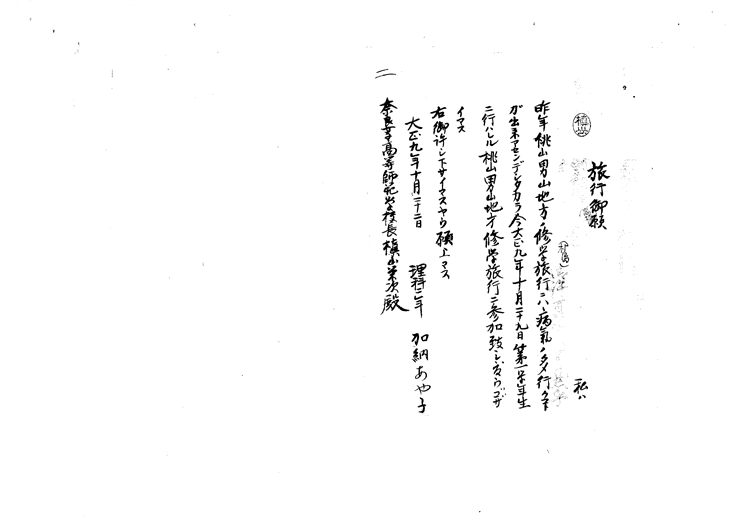 旅行御願
私ハ
昨年桃山男山地方ノ修学旅行ニハ病気ノタメ行クコト
ガ出来マセンデシタカラ今大正九年十月二十九日第一学年生
ニ行ハレル桃山男山地方修学旅行ニ参加致シタウゴザ
イマス
右御許シ下サイマスヤウ願上マス
大正九年十月二十二日
理科二年 加納あや子
奈良女子高等師範学校長槇山栄次殿
二